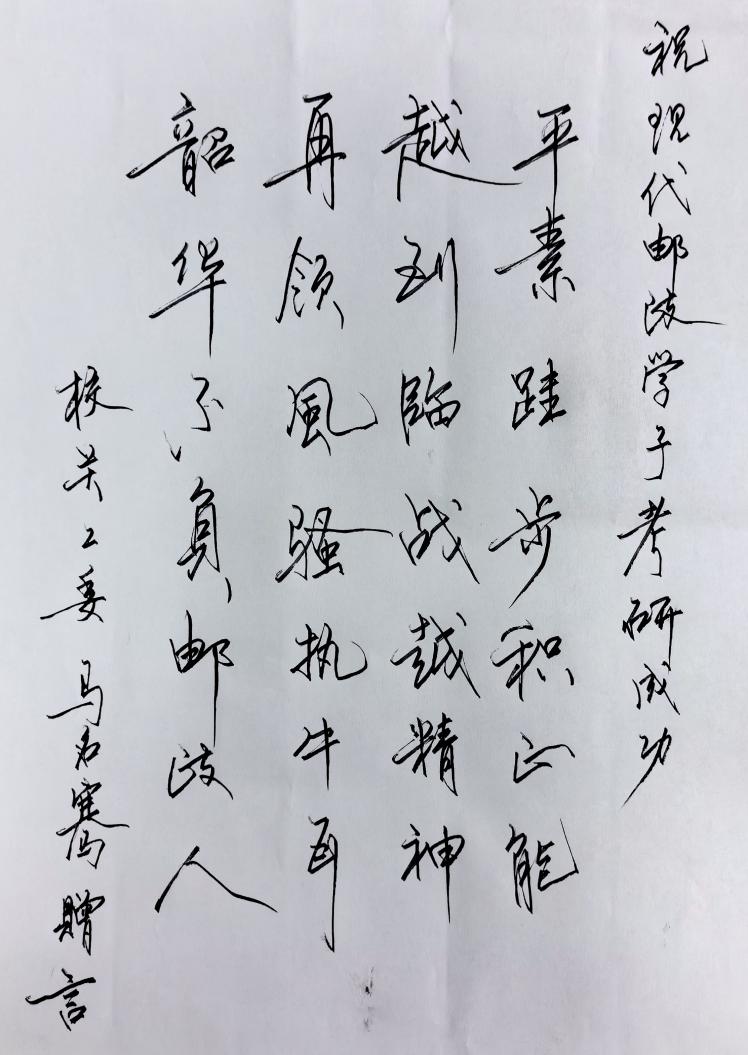 祝现代邮政学子考研成功
平素跬步积正能
越到临战越精神
再领風骚执牛耳
韶华不负邮政人
校关工委马名骞赠言